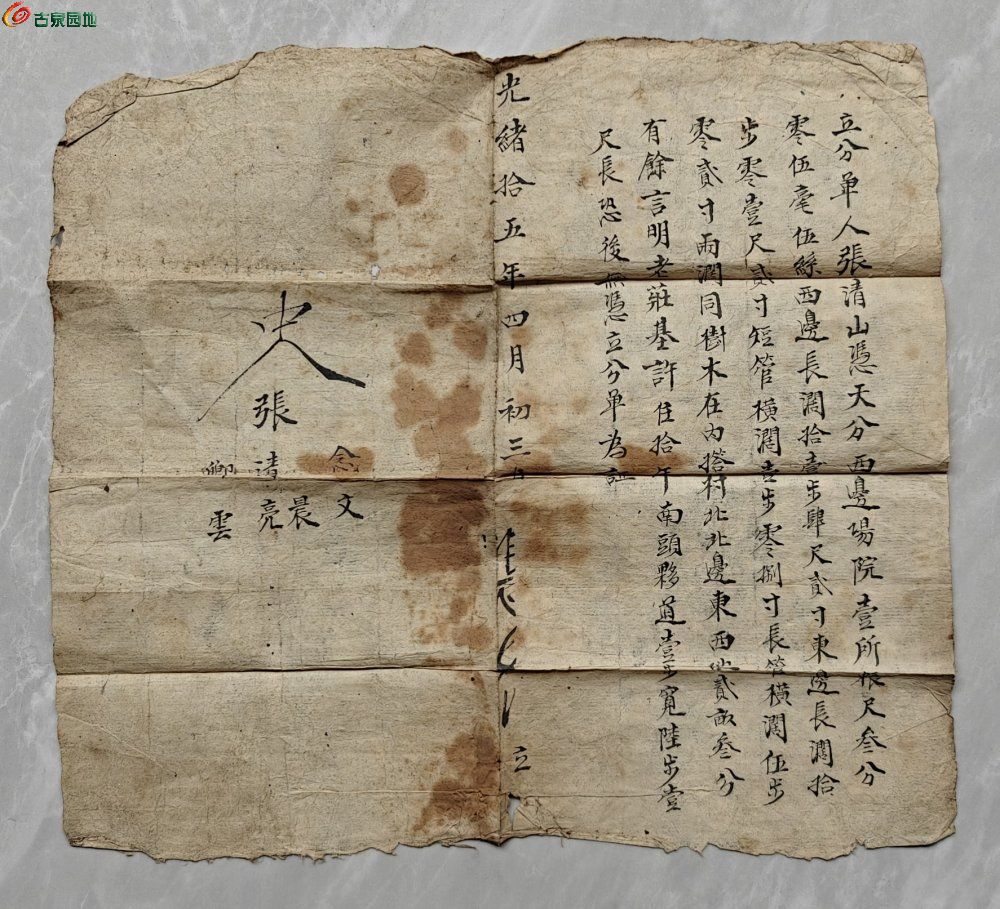 古泉园地
立分單人張清山憑天分西邊場院壹所根尺叁分
零伍毫伍絲西邊長濶拾壹步肆尺貳寸東邊長濶拾
步零壹尺貳寸短管橫濶壹步零捌寸長管橫濶伍步
零貳寸兩濶同樹木在內搭村北北邊東西地貳畝叁分
有餘言明老莊基許住拾年南頭夥道壹步寬陸步壹
尺長恐後無憑立分單為証
光緒拾五年四月初三日 立
中人
張
念文
清晨
亮
卿雲